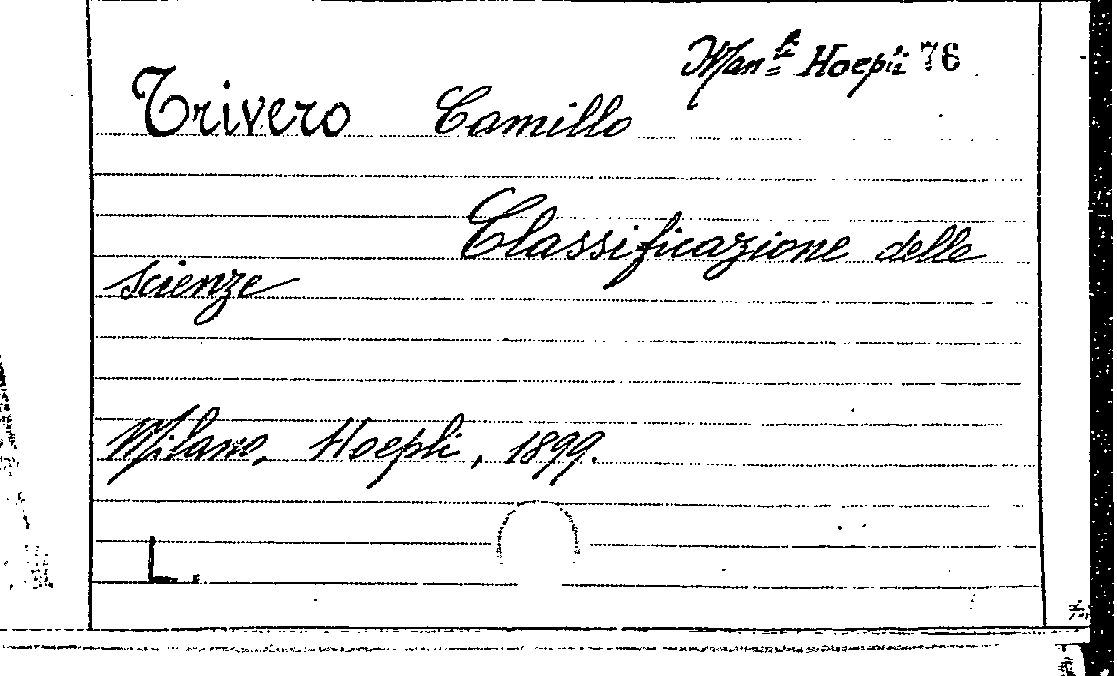 Man.li Hoepli 76
Trivero Camillo
Classificazione delle
scienze
Milano, Hoepli, 1899.
L.